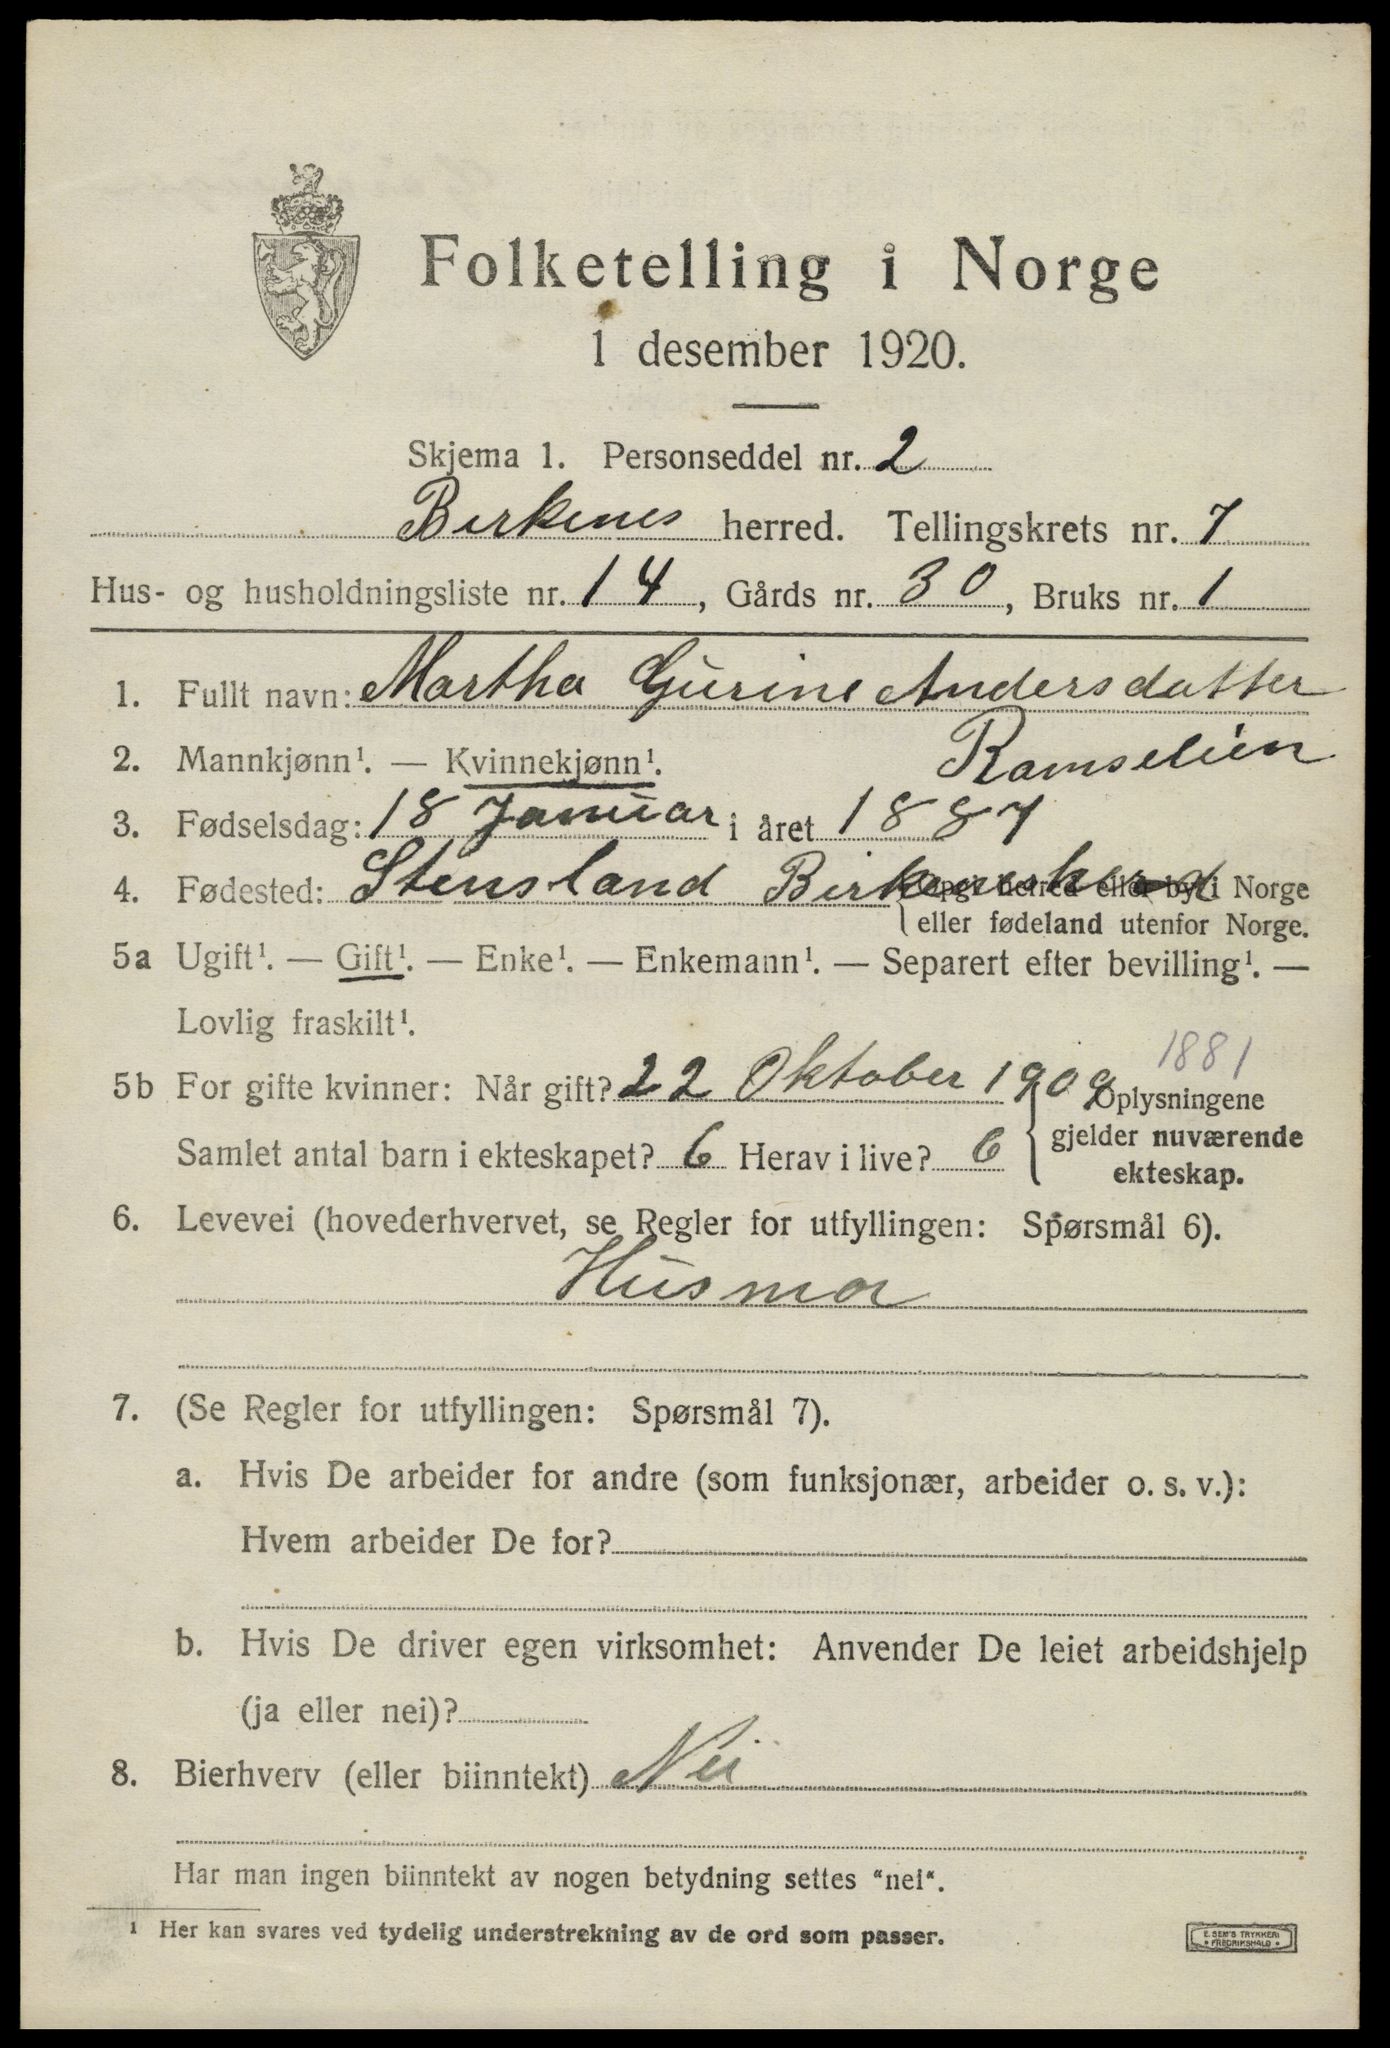 Folketelling i Norge
1 desember 1920.
Skjema 1. Personseddel nr. 2
Birkenes herred. Tellingskrets nr. 7
Hus- og husholdningsliste nr. 14, Gårds nr. 30, Bruks nr. 1
1. Fullt navn: Martha Gurine Andersdatter
Ramselien
2. Mannkjønn¹. — Kvinnekjønn¹.
3. Fødselsdag: 18 Januar i året 1887
4. Fødested: Stensland Birkenesherred {Opgi herred eller by i Norge
eller fødeland utenfor Norge.
5a Ugift¹. — Gift¹. — Enke¹. — Enkemann¹. — Separert efter bevilling¹. —
Lovlig fraskilt¹.
1881
5b For gifte kvinner: Når gift? 22 Oktober 1909 {Oplysningene
gjelder nuværende
ekteskap.
Samlet antal barn i ekteskapet? 6 Herav i live? 6
6. Levevei (hovederhvervet, se Regler for utfyllingen: Spørsmål 6).
Husmor
7. (Se Regler for utfyllingen: Spørsmål 7).
a. Hvis De arbeider for andre (som funksjonær, arbeider o. s. v.):
Hvem arbeider De for?
b. Hvis De driver egen virksomhet: Anvender De leiet arbeidshjelp
(ja eller nei)?
8. Bierhverv (eller biinntekt) Nei
Har man ingen biinntekt av nogen betydning settes "nei".
¹ Her kan svares ved tydelig understrekning av de ord som passer.
E. SEM'S TRYKKERI
• FREDRIKSHALD •